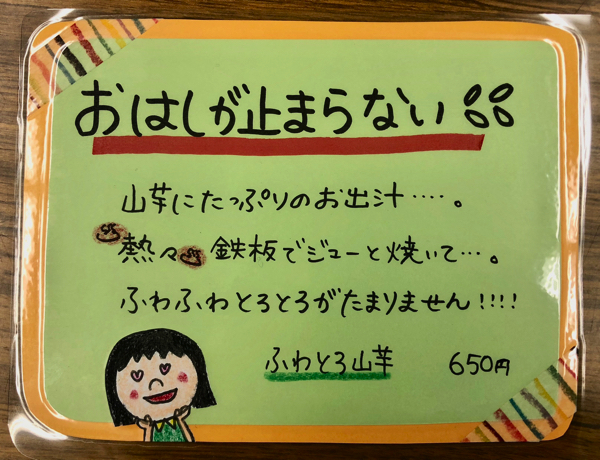 おはしが止まらない
山芋にたっぷりのお出汁‥‥。
熱々 鉄板でジューと焼いて‥。
ふわふわとろとろがたまりません!!!!
ふわとろ山芋 650円